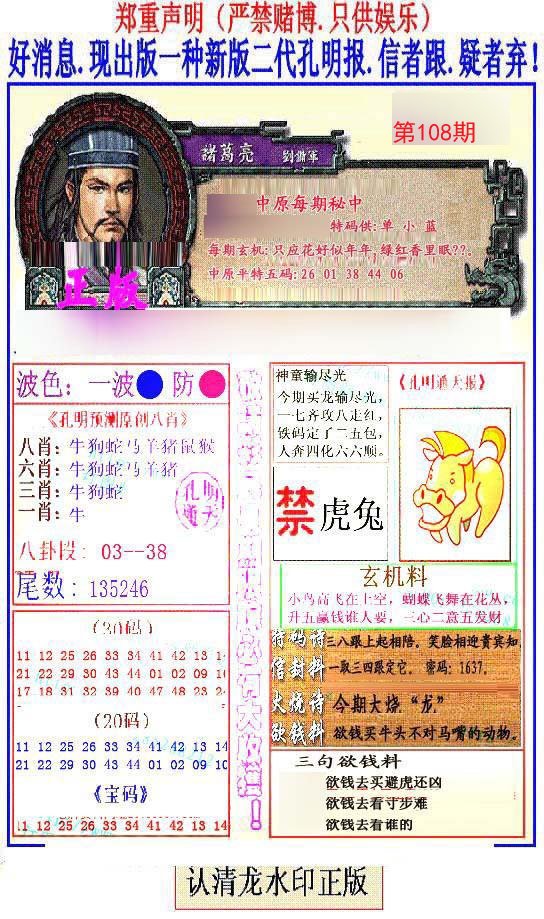 郑重声明（严禁赌博.只供娱乐）
好消息.现出版一种新版二代孔明报.信者跟.疑者弃!
第108期
諸葛亮 劉備軍
中原每期秘中
特码供:单 小 蓝
每期玄机:只应花好似年年,绿红香里眠??。
中原平特五码:26 01 38 44 06
正版
波色：一波 防
《孔明预测原创八肖》
八肖：牛狗蛇马羊猪鼠猴
六肖：牛狗蛇马羊猪
三肖：牛狗蛇
一肖：牛
孔明通天
八卦段：03--38
尾数：135246
(30码)
11 12 25 26 33 34 41 42 13 14
21 22 29 30 44 01 02 09 10
17 18 31 32 39 40 47 48 23 24
(20码)
11 12 25 26 33 34 41 42 13 14
21 22 29 30 44 01 02 09 10
《宝码》
11 12 25 26 33 34 41 42 13 14
神童输尽光
今期买龙输尽光，
一七齐攻八走红，
铁码定了二五包，
人奔四化六六顺。
《孔明通天报》
禁虎兔
玄机料
小鸟高飞在上空，蝴蝶飞舞在花丛，
升五赢钱谁人要，三心二意五发财
特码诗 三八跟上起相陪，笑脸相迎贵宾知，
信封料 一取三四跟定它。密码：1637。
火烧诗 今期大烧“龙”
欲钱料 欲钱买牛头不对马嘴的动物。
三句欲钱料
欲钱去买避虎还凶
欲钱去看寸步难
欲钱去看谁的
认清龙水印正版